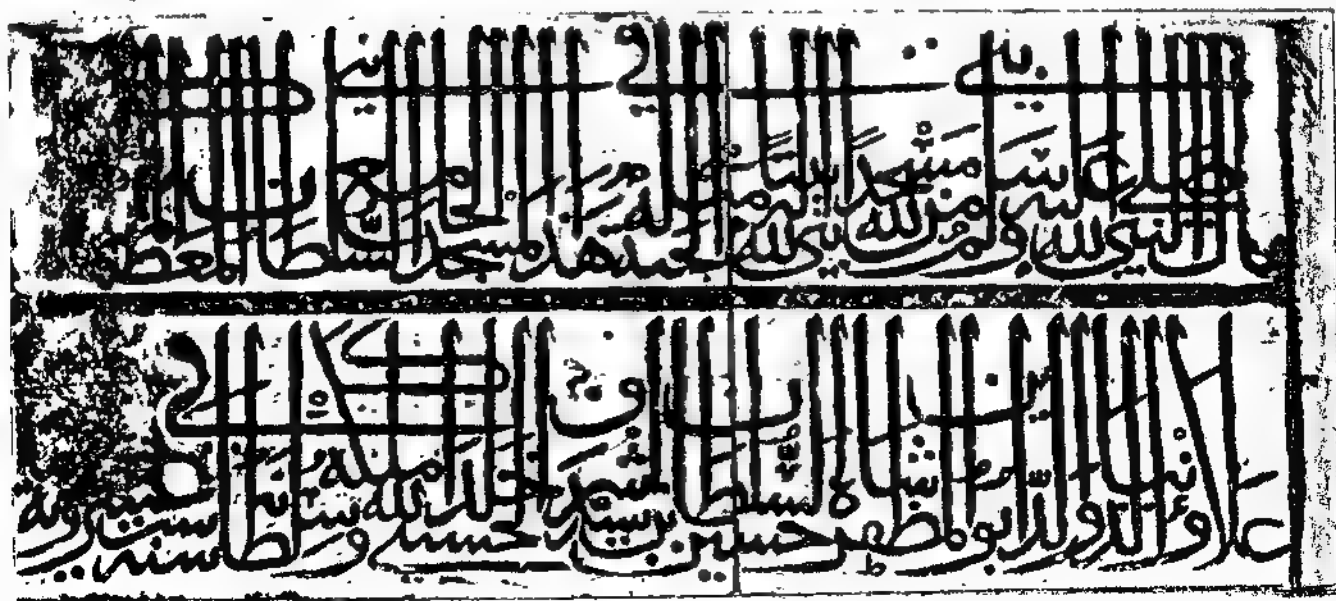 قال النبي صلى الله عليه وسلم من بنى مسجدا لله بنى الله له بيتا مثله في الجنة بنى هذا المسجد الجامع السلطان المعظم
علاء الدنيا والدين ابو المظفر حسين شاه السلطان بن سيد اشرف الحسيني خلد الله ملكه وسلطانه في سنة